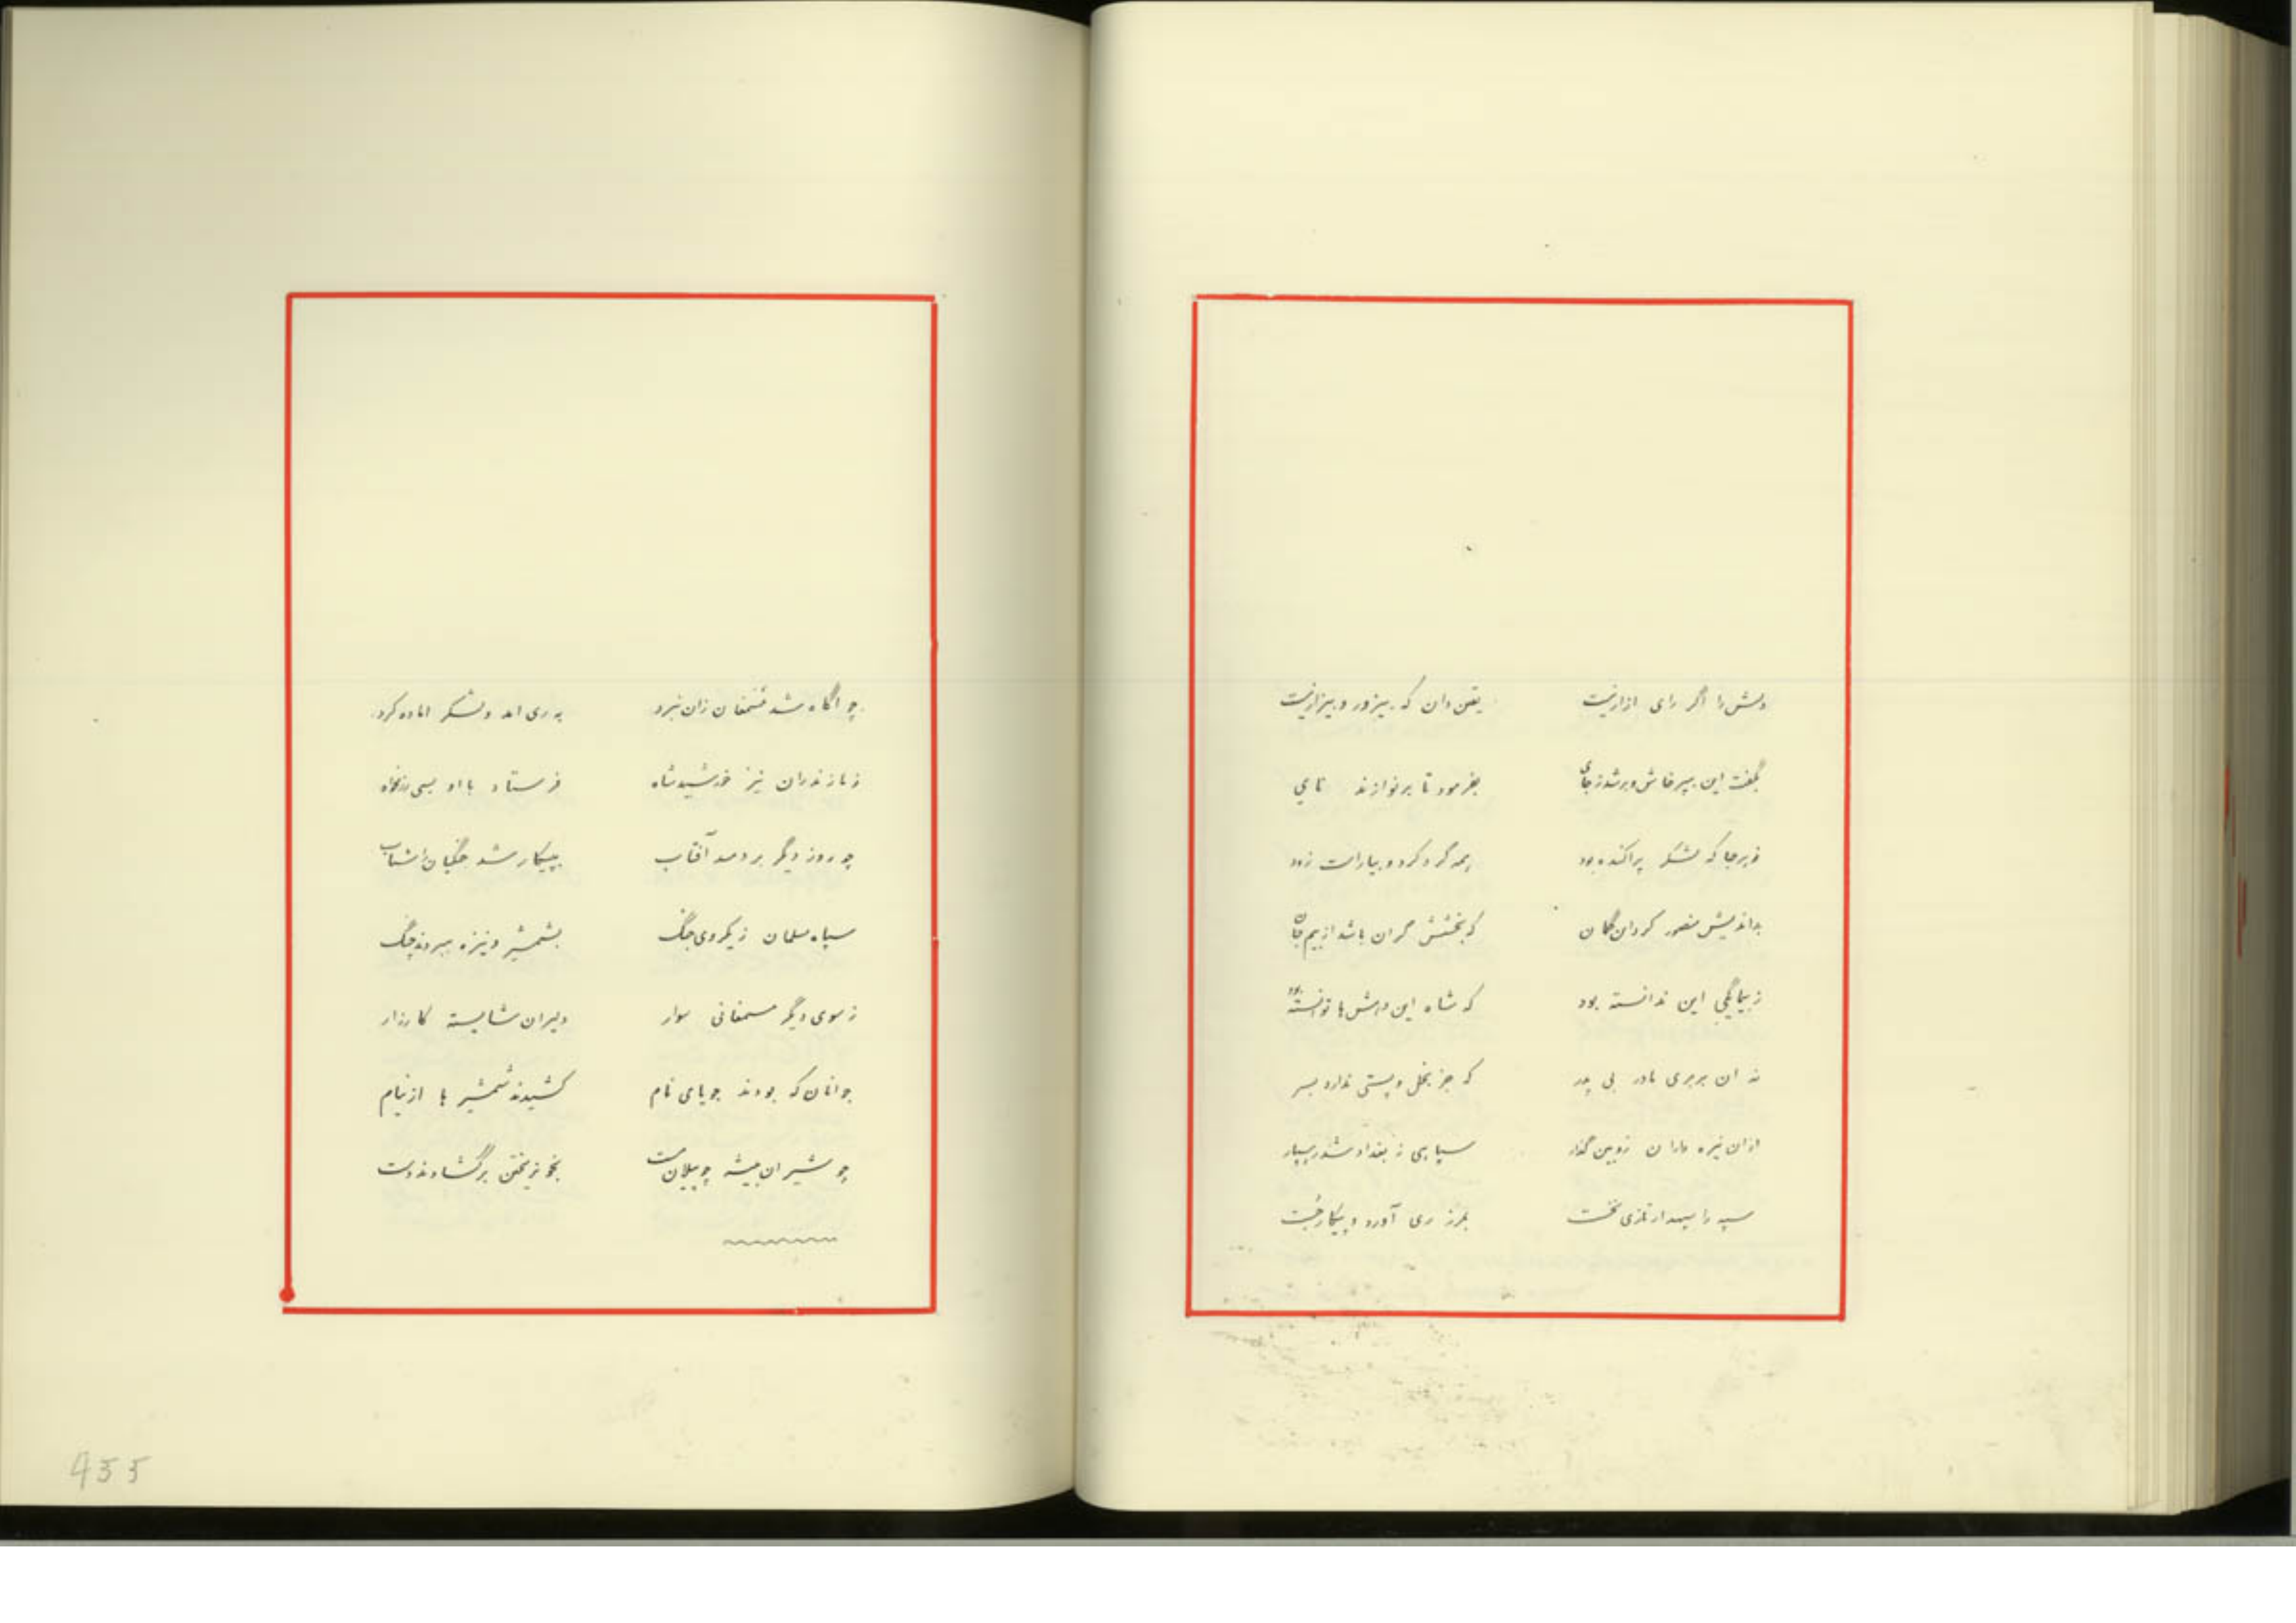 دهش را اگر رای ازار نیست    یقین دان که بیزور و بیزار نیست
بگفت این بپرخاش و برشد ز جای    بفرمود تا بر نوازند نای
ز هر جا که لشکر پراکنده بود    همه گرد کرد و بیاراست زود
بداندیش منصور کردان گمان    که بخشش گران باشد از بیم جان
ز بیمایگی این ندانسته بود    که شاه این دهش ها توانسته بود
نه ان بربری مادر بی پدر    که جز بخل و پستی ندارد بسر
ازان نیزه داران زوبین گذار    سپاهی ز بغداد شد رهسپار
سپه را سپهدار تازی نخست    بمرز ری آورد و پیکار جست
چو اگاه شد مسمغان زان نبرد    به ری امد و لشکر اماده کرد
ز مازندران نیز خورشید شاه    فرستاد با او بسی رزمخواه
چو روز دیگر بر دمید آفتاب    بپیکار شد جنگیان را شتاب
سپاه مسلمان ز یکروی جنگ    بشمشیر و نیزه ببردند چنگ
ز سوی دیگر مسمغانی سوار    دلیران شایسته کارزار
جوانان که بودند جویای نام    کشیدند شمشیر ها از نیام
چو شیران بیشه چو پیلان مست    بخونریختن برگشادند دست
455